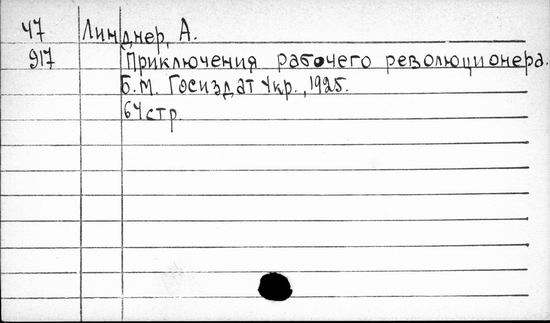 47 Линднер, А.
917 Приключения рабочего революционера.
б.м. Госиздат Укр., 1925.
64 стр.